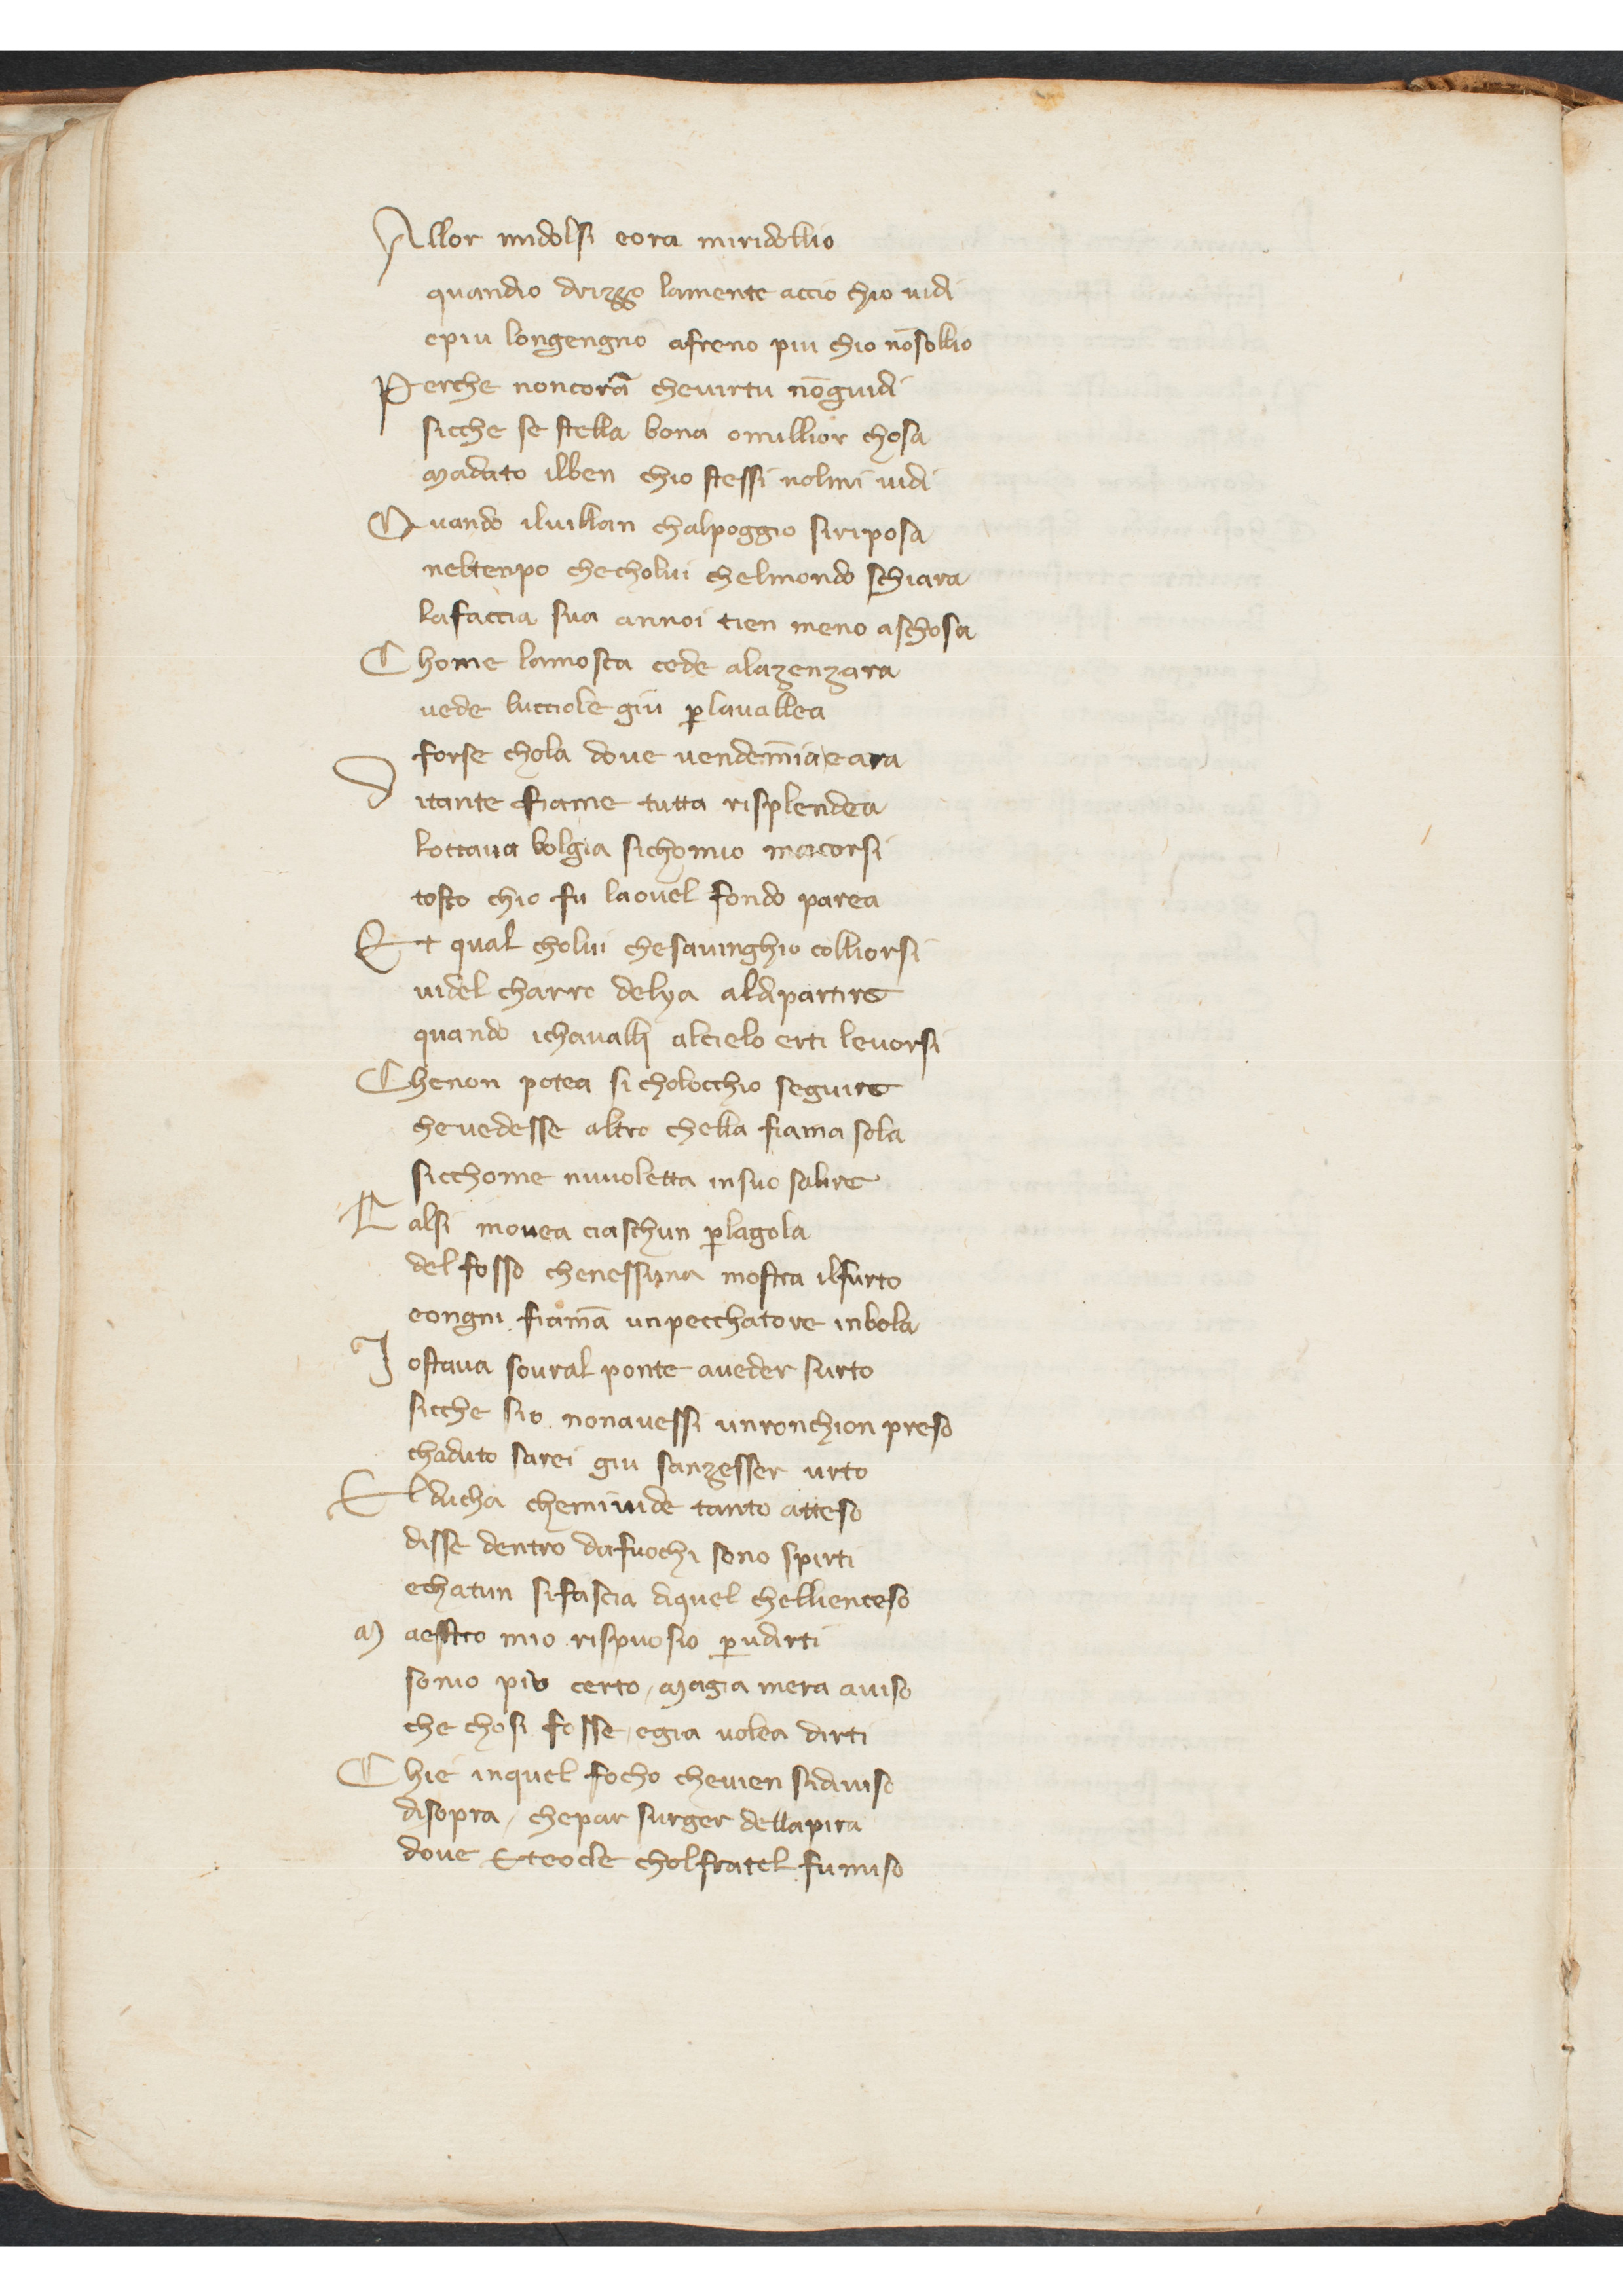 Allor midolsi eora miridollio
quandio drizzo lamente accio chio uidi
epiu longengno afreno piu chio nōsollio
Perche noncorā cheuirtu nōguidi
sicche se stella bona omillior chosa
madato ilben chio stessi nolmi uidi
Quando iluillan chalpoggio siriposa
neltenpo checholui chelmondo schiara
lafaccia sua annoi tien meno aschosa
Chome lamosca cede alazenzara
uede lucciole giu ꝑlauallea
forse chola doue uendem̄ia eara
Ditante fiame tutta risplendea
lottaua bolgia sichomio macorsi
tosto chio fu laouel fondo parea
Et qual cholui chesauinghio colliorsi
uidel charro delya aldipartire
quando ichaualli alcielo erti leuorsi
Chenon potea si cholocchio seguire
heuedesse altro chella fiama sola
sicchome nuuoletta insuo salire
Talsi mouea ciaschun ꝑlagola
del fosso chenessuna mostra ilfurto
eongni fiamā unpecchatore inbola
Iostaua soural ponte aueder surto
sicche sio nonauessi unronchion preso
chaduto sarei giu sanzesser urto
Elducha chemiuide tanto atteso
disse dentro dafuochi sono spirti
echatun sifascia diquel chellienceso
Maestro mio rispuosio ꝑudirti
sonio piu certo / magia mera auiso
che chosi fosse / egia uolea dirti
Chie inquel focho cheuien sidiuiso
disopra / chepar surger dellapira
doue Eteocle cholfratel fumiso